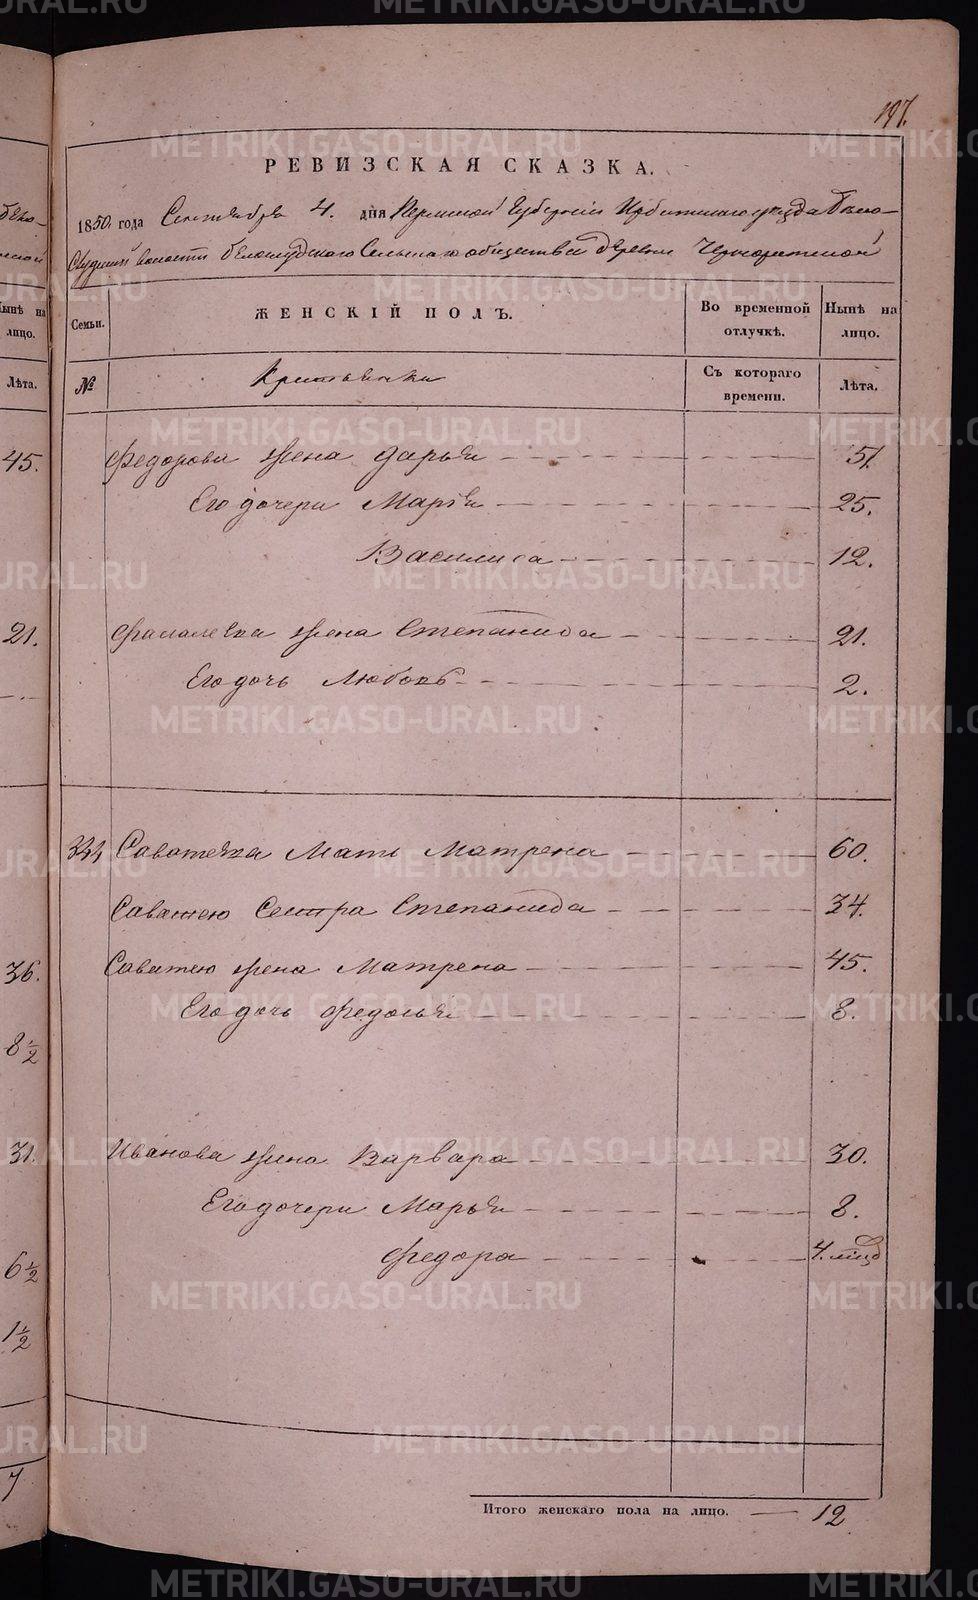 197.
РЕВИЗСКАЯ СКАЗКА.
1850. года Сентября 4. дня Пермской Губернии Ирбитскаго уезда Бело-
слудской волости Белослудскаго Сельскаго общества деревни
Семьи.
ЖЕНСКІЙ ПОЛЪ.
Во временной отлучкѣ.
Нынѣ на лицо.
№
Крестьянки
Съ котораго времени.
Лѣта.
Федорова жена Дарья 51.
Его дочери Марья 25.
Василиса 12.
жена Степанида 21.
Его дочь Любовь 2.
344 Саватея мать Матрена 60.
Саватею Сестра Степанида 34.
Саватею жена Матрена 45.
Его дочь Федосья 8.
Иванова жена Варвара 30.
Его дочери Марья 8.
Федора 4.
Итого женскаго пола на лицо. 12
Нынѣ на лицо.
Лѣта.
45.
21.
36.
8½
31.
6½
1½
7
METRIKI.GASO-URAL.RU